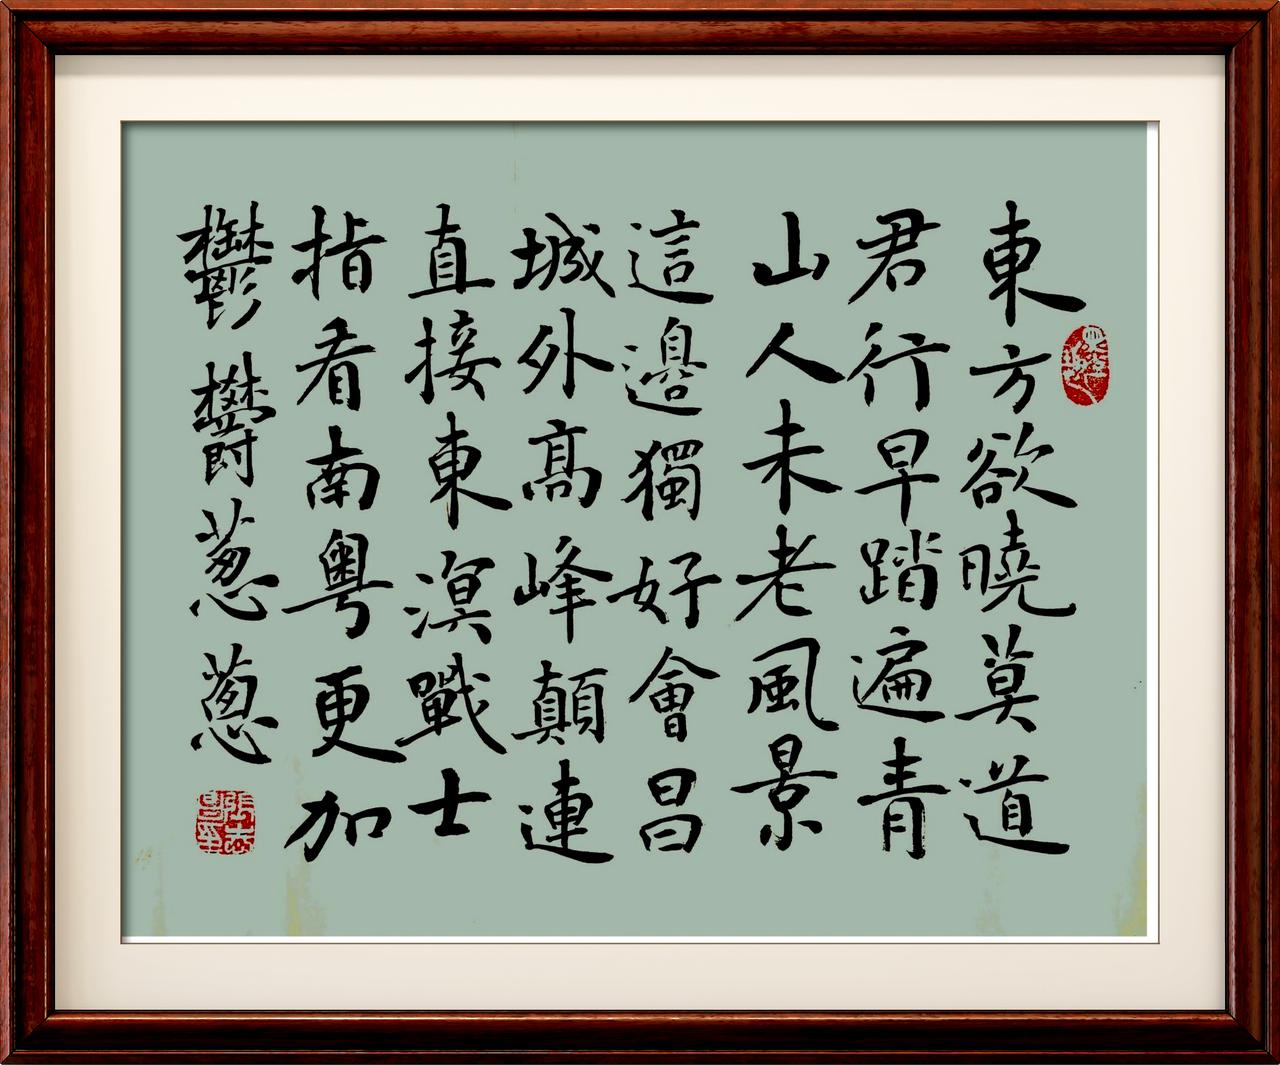 東方欲曉莫道
君行早踏遍青
山人未老風景
這邊獨好會昌
城外髙峰顛連
直接東溟戰士
指看南粵更加
鬱鬱葱葱